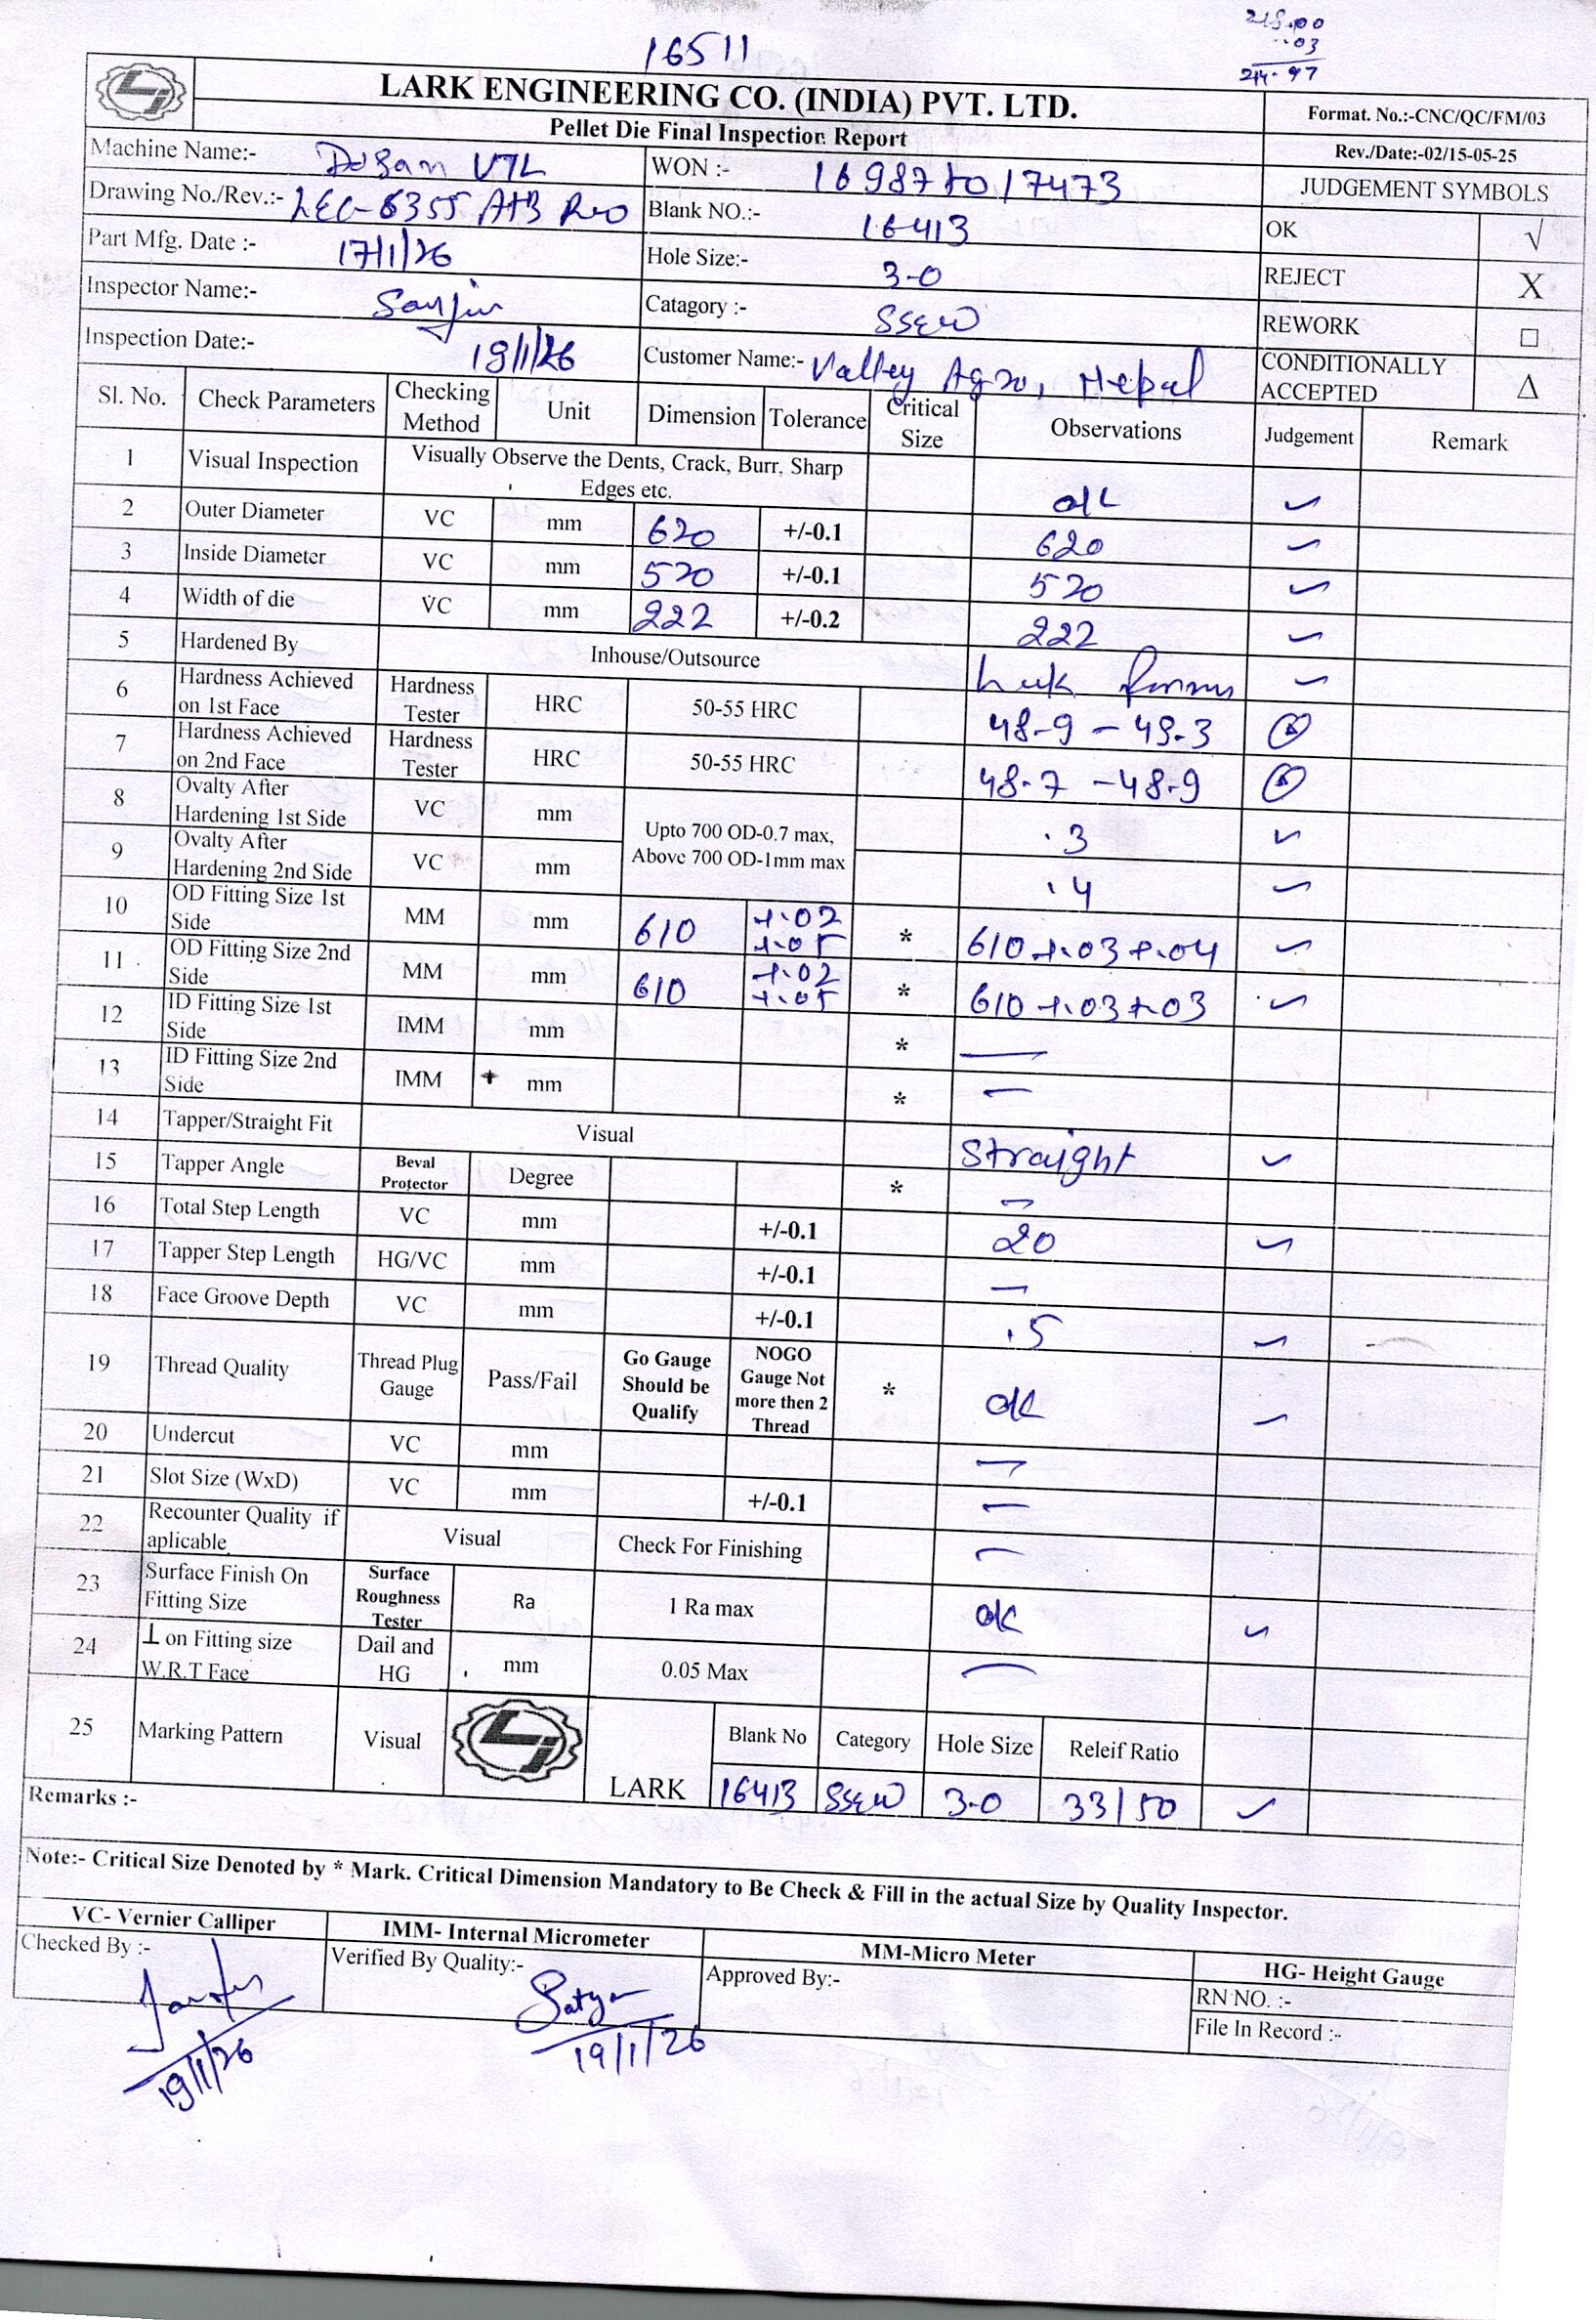 215.00
.03
214.97
16511
LARK ENGINEERING CO. (INDIA) PVT. LTD.
Format. No.:-CNC/QC/FM/03
Pellet Die Final Inspection Report
Rev./Date:-02/15-05-25
Machine Name:- VTL
WON :- 16987 to 17473
JUDGEMENT SYMBOLS
Drawing No./Rev.:- LEC-6355 A+B Ro
Blank NO.:- 16413
OK √
Part Mfg. Date :- 17/1/26
Hole Size:- 3-0
REJECT X
Inspector Name:-
Catagory :- SSEW
REWORK □
Inspection Date:- 19/1/26
Customer Name:- Valley Agro, Nepal
CONDITIONALLY ACCEPTED Δ
Sl. No. Check Parameters Checking Method Unit Dimension Tolerance Critical Size Observations Judgement Remark
1 Visual Inspection Visually Observe the Dents, Crack, Burr, Sharp Edges etc. ok ✓
2 Outer Diameter VC mm 620 +/-0.1 620 ✓
3 Inside Diameter VC mm 520 +/-0.1 520 ✓
4 Width of die VC mm 222 +/-0.2 222 ✓
5 Hardened By Inhouse/Outsource ✓
6 Hardness Achieved on 1st Face Hardness Tester HRC 50-55 HRC 48-9 - 49.3
7 Hardness Achieved on 2nd Face Hardness Tester HRC 50-55 HRC 48.7 - 48.9
8 Ovalty After Hardening 1st Side VC mm Upto 700 OD-0.7 max, Above 700 OD-1mm max .3 ✓
9 Ovalty After Hardening 2nd Side VC mm .4 ✓
10 OD Fitting Size 1st Side MM mm 610 +.02 +.05 * 610 +.03 +.04 ✓
11 OD Fitting Size 2nd Side MM mm 610 +.02 +.05 * 610 +.03 +.03 ✓
12 ID Fitting Size 1st Side IMM mm * —
13 ID Fitting Size 2nd Side IMM mm * —
14 Tapper/Straight Fit Visual Straight ✓
15 Tapper Angle Beval Protector Degree * —
16 Total Step Length VC mm +/-0.1 20 ✓
17 Tapper Step Length HG/VC mm +/-0.1 —
18 Face Groove Depth VC mm +/-0.1 .5 ✓
19 Thread Quality Thread Plug Gauge Pass/Fail Go Gauge Should be Qualify NOGO Gauge Not more then 2 Thread * ok ✓
20 Undercut VC mm —
21 Slot Size (WxD) VC mm +/-0.1 —
22 Recounter Quality if aplicable Visual Check For Finishing —
23 Surface Finish On Fitting Size Surface Roughness Tester Ra 1 Ra max ok ✓
24 ⊥ on Fitting size W.R.T Face Dail and HG mm 0.05 Max —
25 Marking Pattern Visual LARK Blank No Category Hole Size Releif Ratio
16413 SSEW 3.0 33/50 ✓
Remarks :-
Note:- Critical Size Denoted by * Mark. Critical Dimension Mandatory to Be Check & Fill in the actual Size by Quality Inspector.
VC- Vernier Calliper IMM- Internal Micrometer MM-Micro Meter HG- Height Gauge
Checked By :- Verified By Quality:- Approved By:- RN NO. :-
File In Record :-
Satya
19/1/26 19/1/26